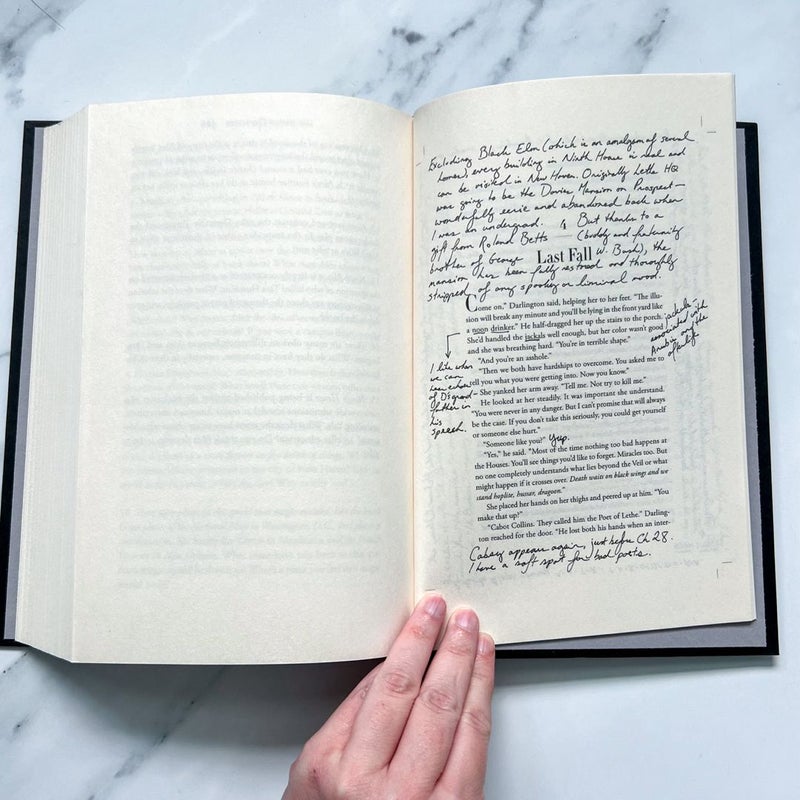 Excluding Black Elm (which is an amalgam of several
homes) every building in Ninth House is real and
can be visited in New Haven. Originally Lethe HQ
was going to be the Davies Mansion on Prospect—
wonderfully eerie and abandoned back when
I was an undergrad. But thanks to a
gift from Roland Betts (buddy and fraternity
brother of George W. Bush), the
mansion has been fully restored and thoroughly
stripped of any spooky or liminal mood.
4
Last Fall
Come on," Darlington said, helping her to her feet. "The illu-
sion will break any minute and you'll be lying in the front yard like
a noon drinker." He half-dragged her up the stairs to the porch.
She'd handled the jackals well enough, but her color wasn't good
and she was breathing hard. "You're in terrible shape."
"And you're an asshole."
"Then we both have hardships to overcome. You asked me to
tell you what you were getting into. Now you know."
She yanked her arm away. "Tell me. Not try to kill me."
He looked at her steadily. It was important she understand.
"You were never in any danger. But I can't promise that will always
be the case. If you don't take this seriously, you could get yourself
or someone else hurt."
"Someone like you?" Yup.
"Yes," he said. "Most of the time nothing too bad happens at
the Houses. You'll see things you'd like to forget. Miracles too. But
no one completely understands what lies beyond the Veil or what
might happen if it crosses over. Death waits on black wings and we
stand hoplite, hussar, dragoon."
She placed her hands on her thighs and peered up at him. "You
make that up?"
"Cabot Collins. They called him the Poet of Lethe." Darling-
ton reached for the door. "He lost both his hands when an inter-
jackals—
associated with
Anubis and the
afterlife
I like when
we can
hear echoes
of D's grand-
father in
his
speech.
Cabsy appears again, just before Ch 28.
I have a soft spot for bad poets.